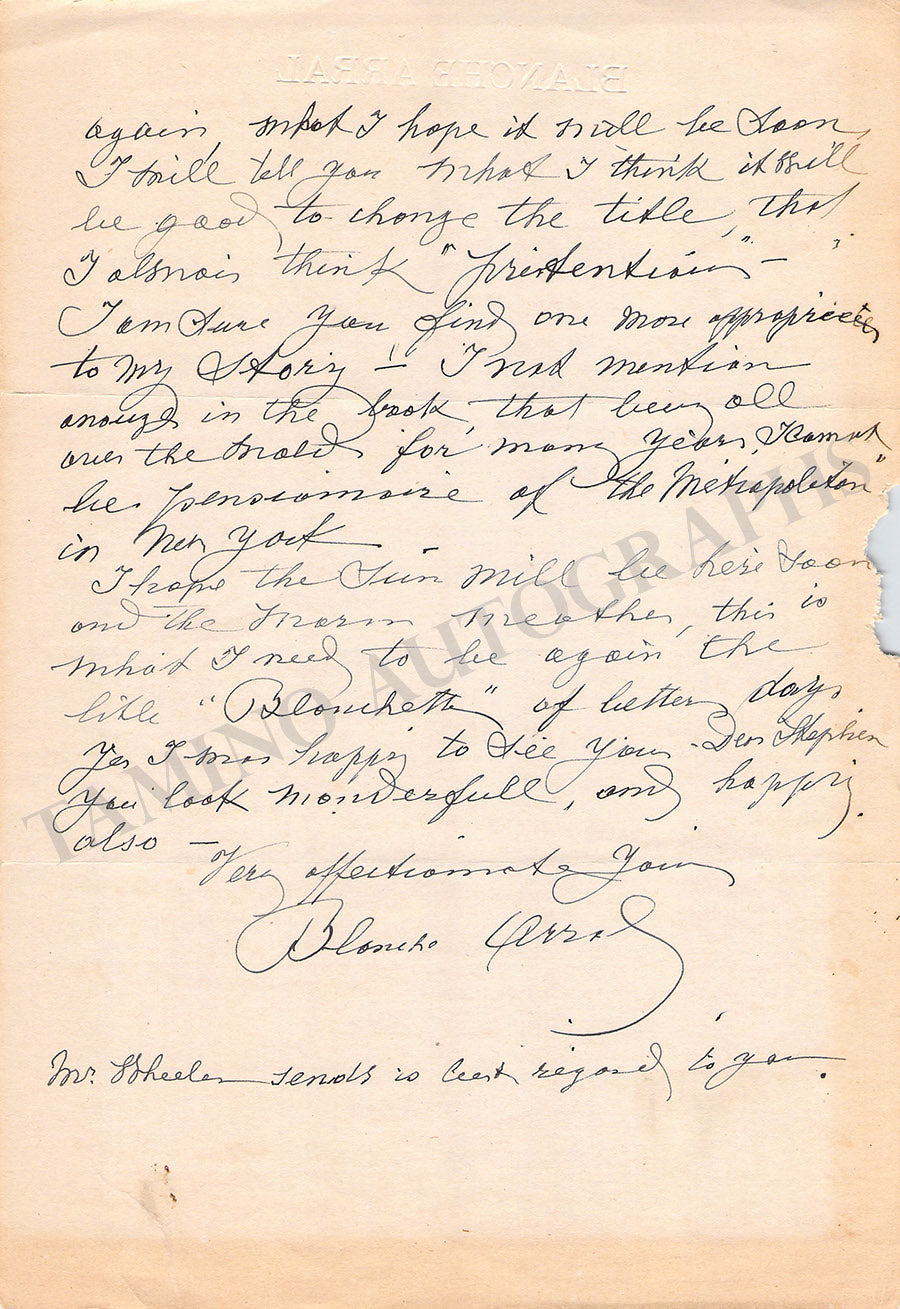 BLANCHE ARRAL
again, what I hope it will be soon,
I will tell you what I think it will
be good, to change the title, that
I always think "pretentious" —
I am sure you find one more appropriate
to my Story — I not mention
enough in the book, that being all
over the world for many years, I cannot
be pensionnaire of "the Metropolitan"
in New York
I hope the Sun will be here soon
and the warm weather, this is
what I need to be again the
little "Blanchette" of better days
Yes I was happy to see you - Dear Stephen
You look wonderfull, and happy
also —
Very affectionate Your
Blanche Arral
Mr. Wheeler sends is best regard to you.
TAMINO AUTOGRAPHS